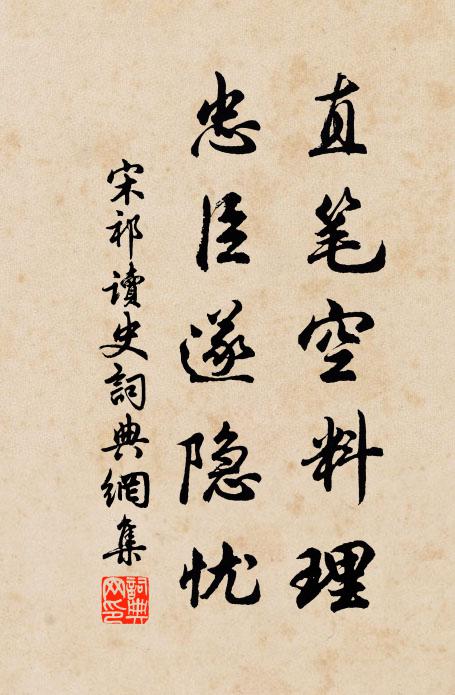 直笔空料理
忠臣遂隐忧
宋祁讀史詞典網集
詞典